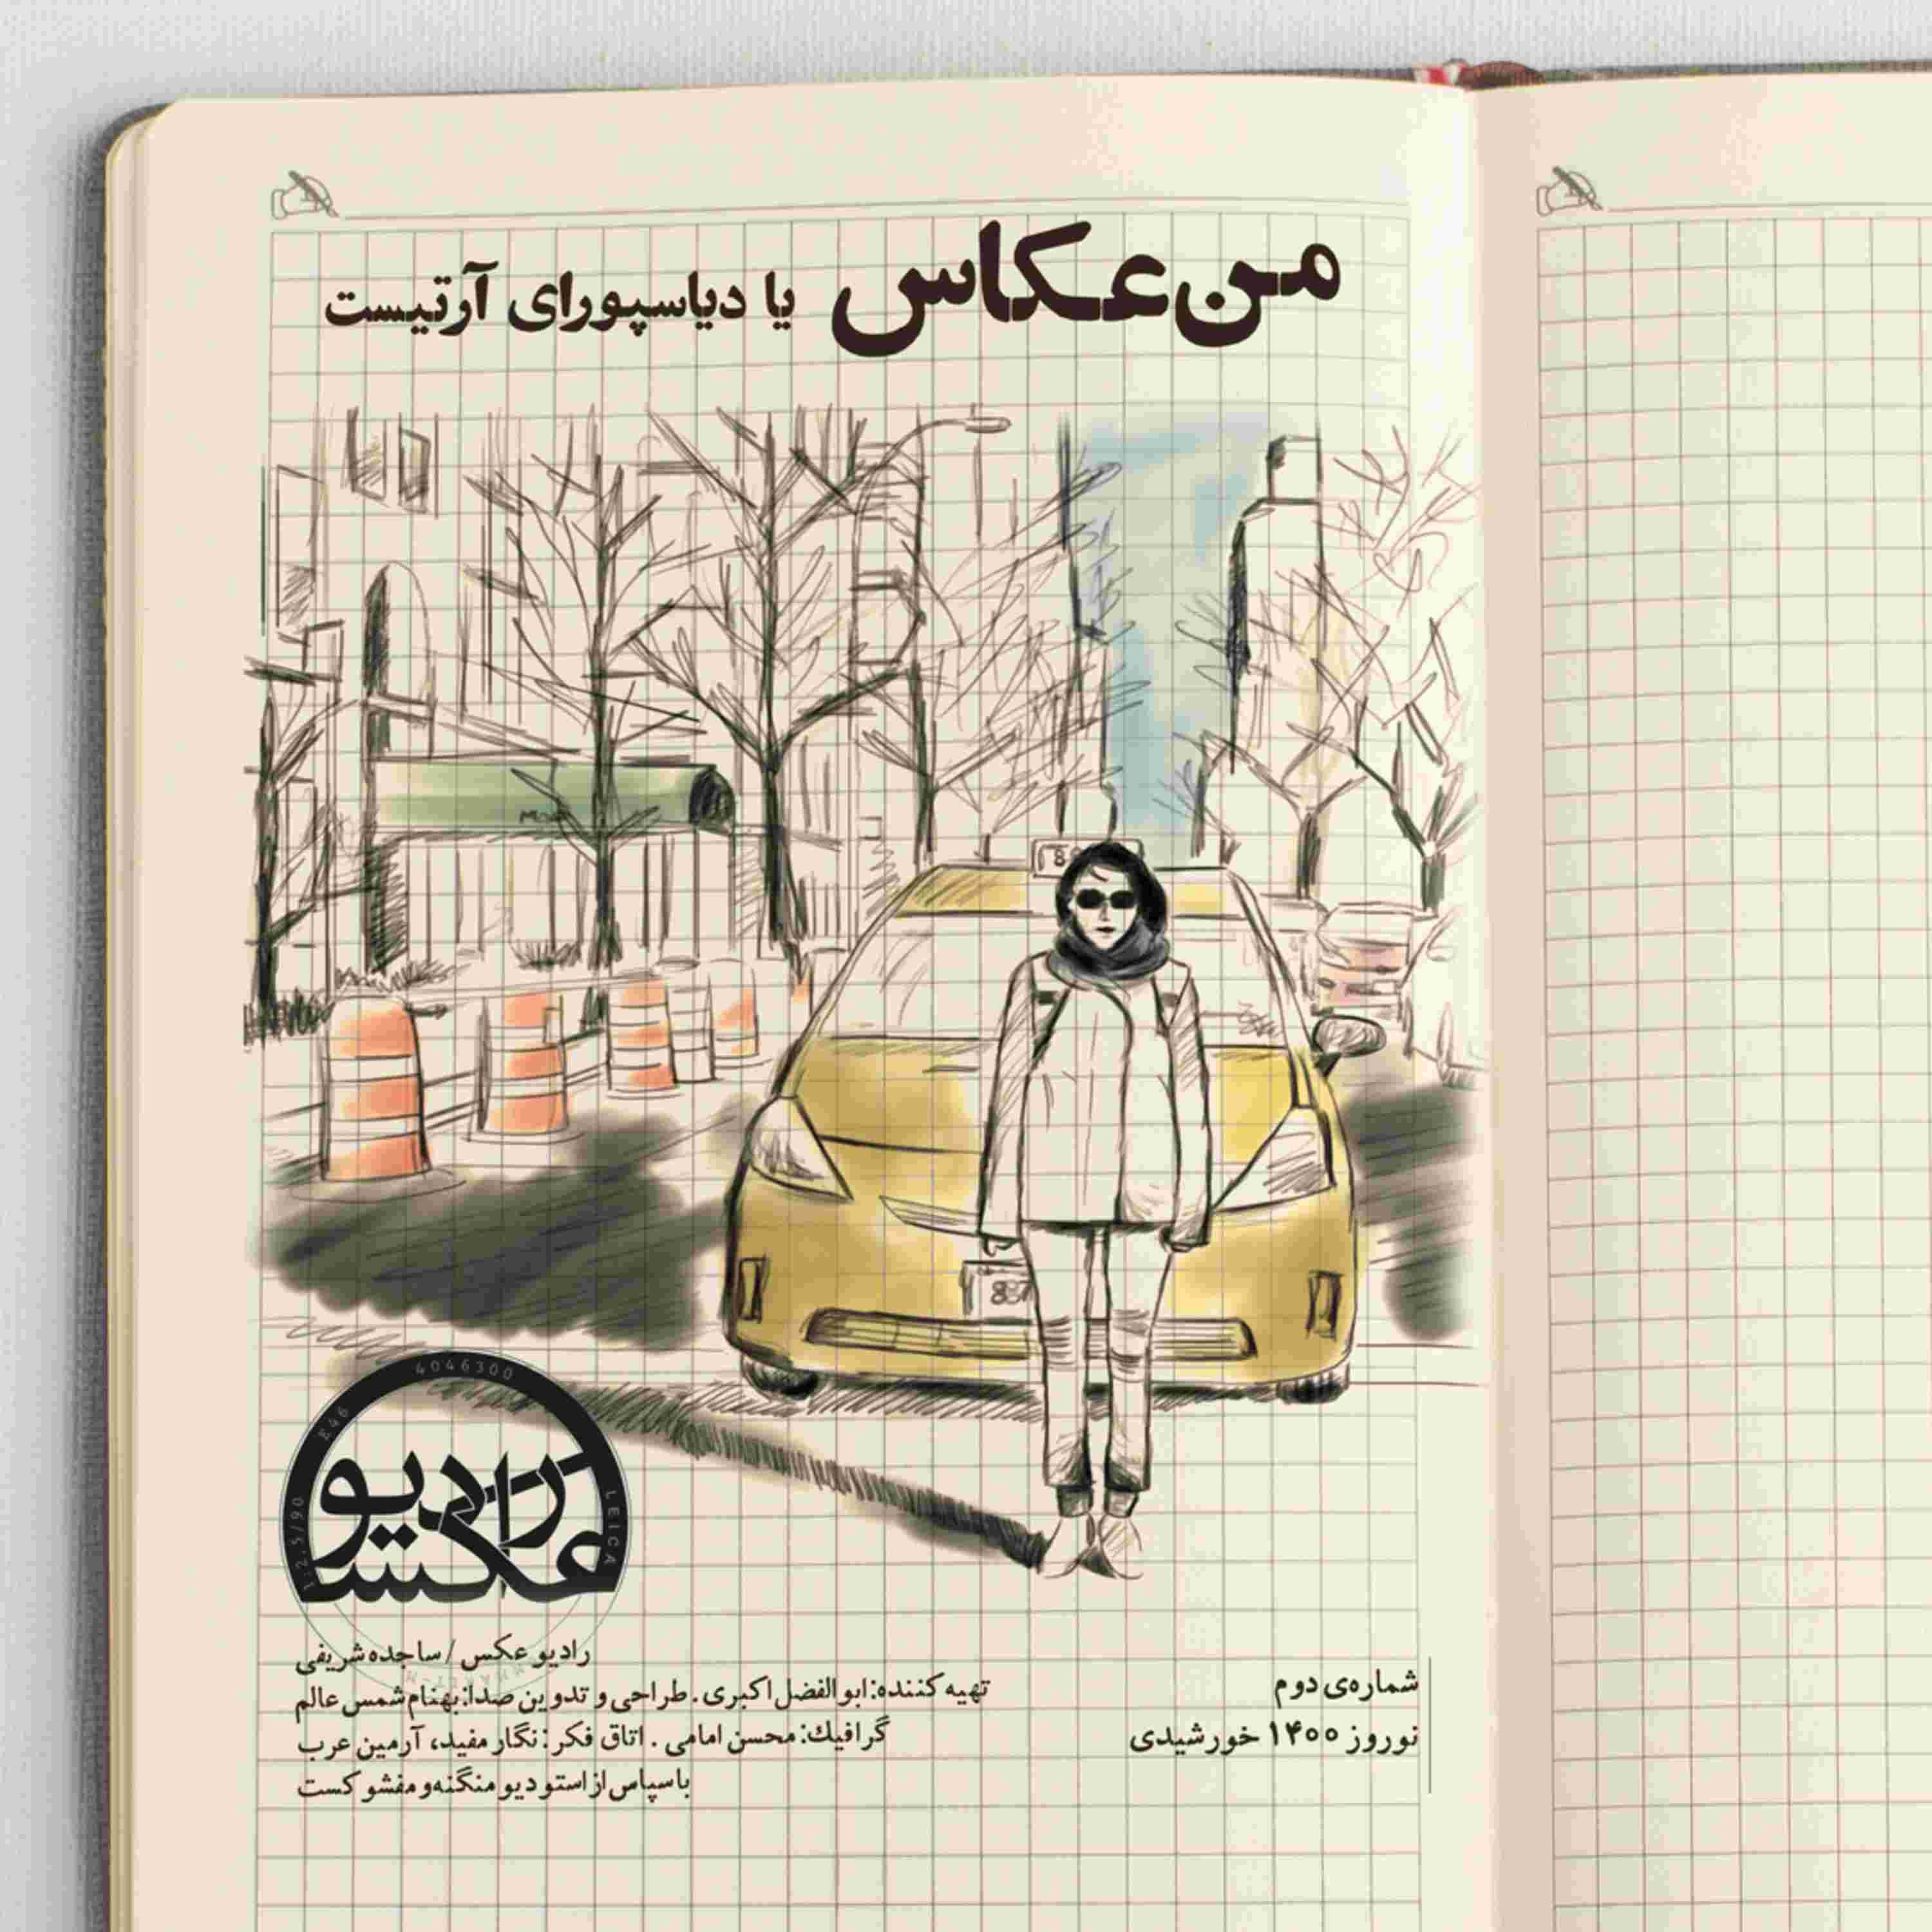 من عکاس یا دیاسپورای آرتیست
4046300
E46
LEICA
1:2.5/90
رادیو
عکس
887
رادیو عکس / ساجده شریفی
تهیه کننده: ابوالفضل اکبری. طراحی و تدوین صدا: بهنام شمس عالم
گرافیك: محسن امامی. اتاق فکر: نگار مفید، آرمین عرب
با سپاس از استودیو منگنه و مفشو کست
شماره‌ی دوم
نوروز ۱۴۰۰ خورشیدی